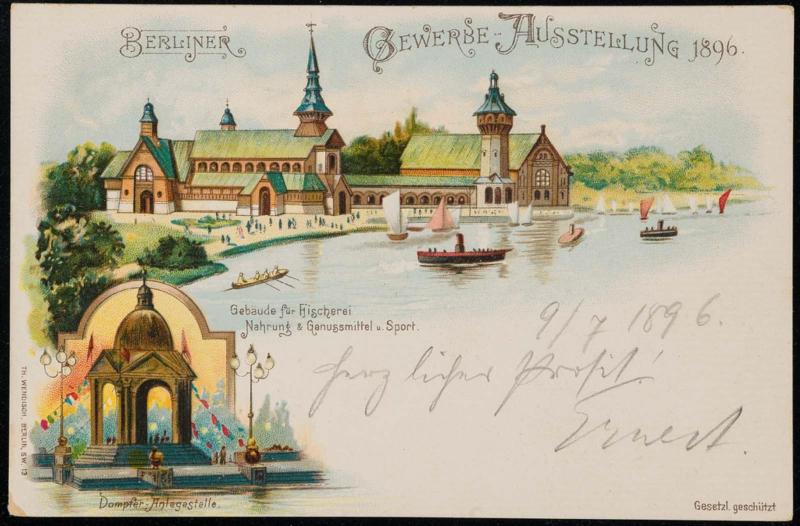 BERLINER GEWERBE-AUSSTELLUNG 1896.
Gebäude für Fischerei
Nahrung & Genussmittel u. Sport.
9/7 1896.
Herzlichen Prosit!
Ernest.
TH. WENDISCH, BERLIN, SW 13
Dampfer-Anlegestelle.
Gesetzl. geschützt